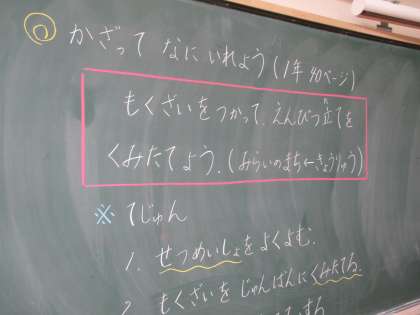 かざって なに いれよう(1年 40ページ)
もくざいをつかって、えんぴつ立てを
くみたてよう。(みらいのまち←きょうりゅう)
※ てじゅん
1. せつめいしょをよくよむ.
2. もくざいを じゅんばんにくみたてる.